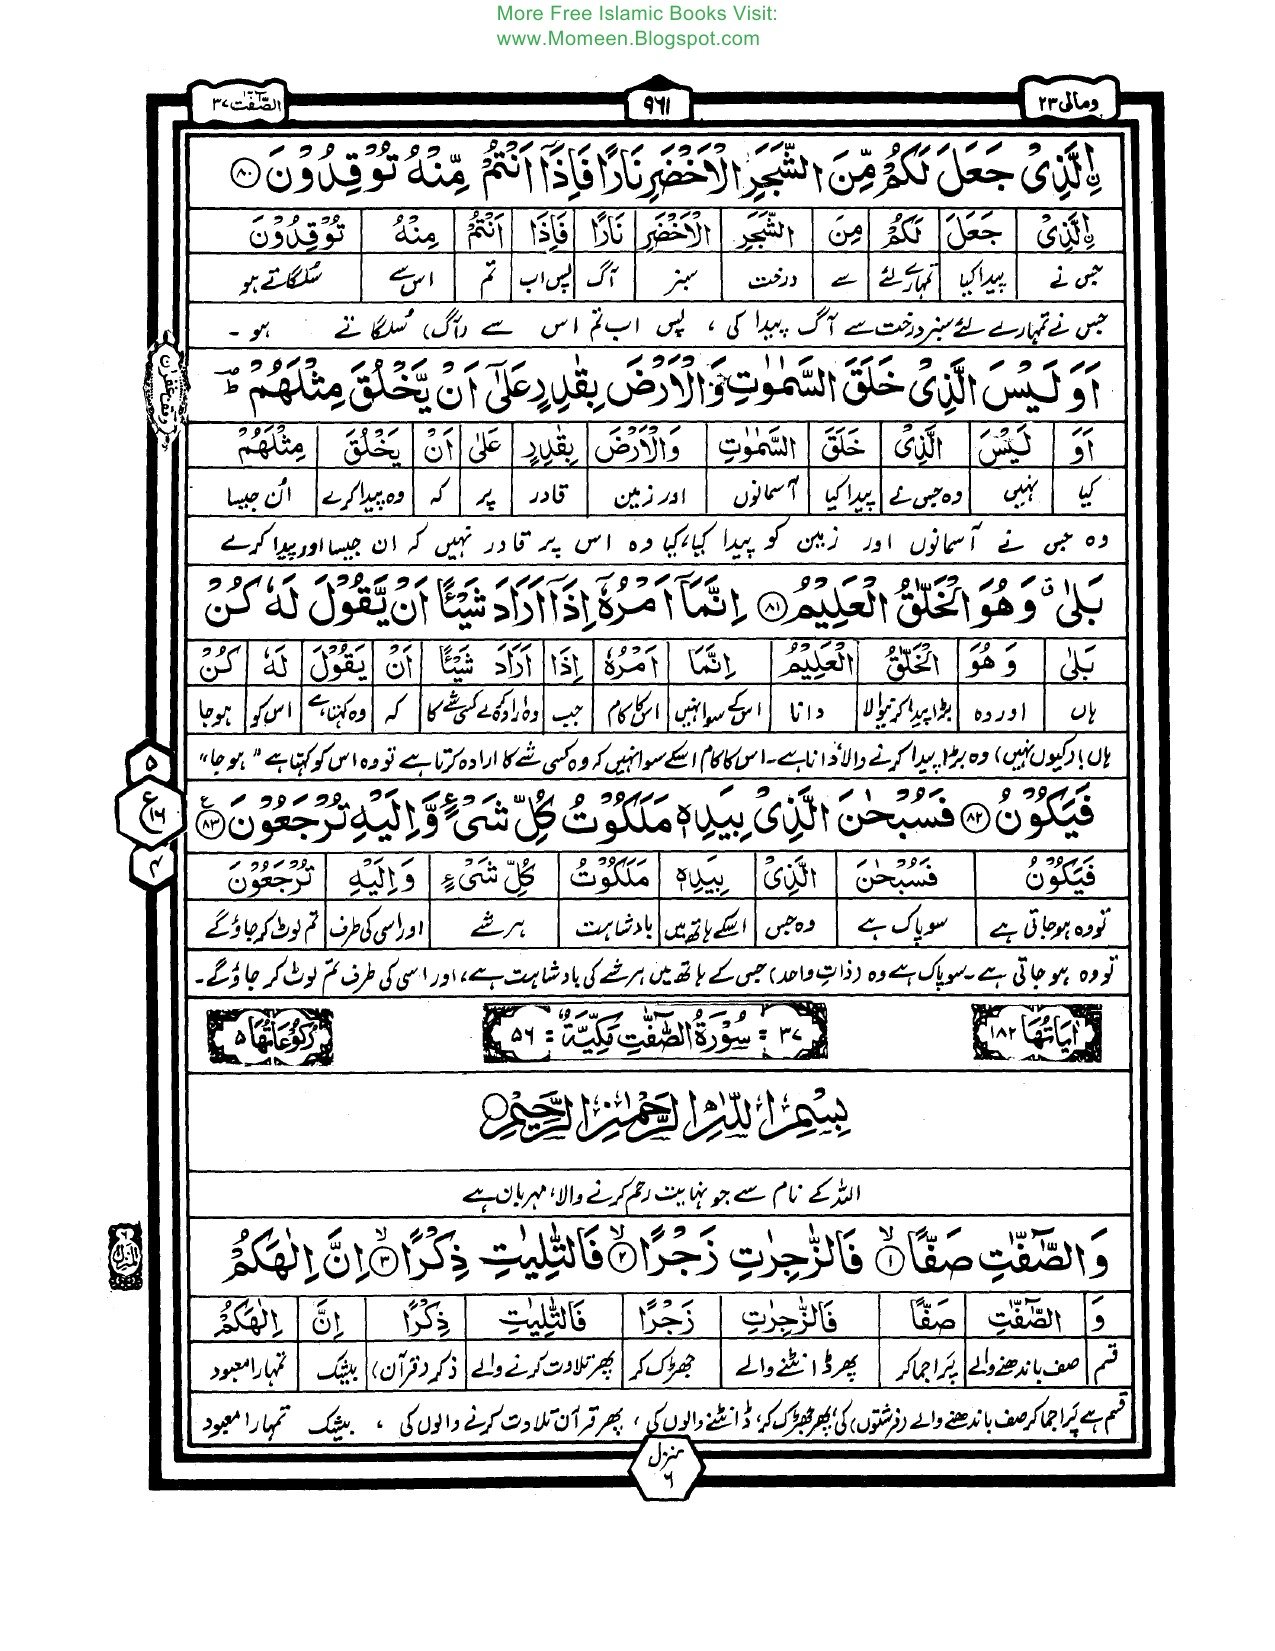 More Free Islamic Books Visit:
www.Momeen.Blogspot.com
ومالی ۲۳
۹۶۱
الصّٰٓفّٰت ۳۷
نِ الَّذِیْ جَعَلَ لَكُمْ مِّنَ الشَّجَرِ الْاَخْضَرِ نَارًا فَاِذَاۤ اَنْتُمْ مِّنْهُ تُوْقِدُوْنَ ﴿۸۰﴾
نِ الَّذِیْ جَعَلَ لَكُمْ مِنَ الشَّجَرِ الْاَخْضَرِ نَارًا فَاِذَا اَنْتُمْ مِنْهُ تُوْقِدُوْنَ
جس نے پیدا کیا تمہارے لئے سے درخت سبز آگ پس اب تم اس سے سُلگاتے ہو
جس نے تمہارے لئے سبز درخت سے آگ پیدا کی ، پس اب تم اس سے (آگ) سُلگاتے ہو ۔
اَوَ لَیْسَ الَّذِیْ خَلَقَ السَّمٰوٰتِ وَالْاَرْضَ بِقٰدِرٍ عَلٰۤی اَنْ یَّخْلُقَ مِثْلَهُمْ ؕ
اَوَ لَیْسَ الَّذِیْ خَلَقَ السَّمٰوٰتِ وَالْاَرْضَ بِقٰدِرٍ عَلٰی اَنْ یَخْلُقَ مِثْلَهُمْ
کیا نہیں وہ جس نے پیدا کیا آسمانوں اور زمین قادر پر کہ وہ پیدا کرے اُن جیسا
وہ جس نے آسمانوں اور زمین کو پیدا کیا، کیا وہ اس پر قادر نہیں کہ ان جیسا اور پیدا کرے
بَلٰی ۗ وَهُوَ الْخَلّٰقُ الْعَلِیْمُ ﴿۸۱﴾ اِنَّمَاۤ اَمْرُهٗۤ اِذَاۤ اَرَادَ شَیْـًٔا اَنْ یَّقُوْلَ لَهٗ كُنْ
بَلٰی وَهُوَ الْخَلّٰقُ الْعَلِیْمُ اِنَّمَا اَمْرُهٗ اِذَا اَرَادَ شَیْئًا اَنْ یَقُوْلَ لَهٗ كُنْ
ہاں اور وہ بڑا پیدا کرنیوالا دانا اس کے سوا نہیں اس کا کام جب وہ ارادہ کرے کسی شے کا کہ وہ کہتا ہے اس کو ہو جا
ہاں! (کیوں نہیں) وہ بڑا پیدا کرنے والا دانا ہے۔ اس کا کام اسکے سوا نہیں کہ وہ کسی شے کا ارادہ کرتا ہے تو وہ اس کو کہتا ہے "ہو جا"
فَیَكُوْنُ ﴿۸۲﴾ فَسُبْحٰنَ الَّذِیْ بِیَدِهٖ مَلَكُوْتُ كُلِّ شَیْءٍ وَّاِلَیْهِ تُرْجَعُوْنَ ﴿۸۳﴾ ع
فَیَكُوْنُ فَسُبْحٰنَ الَّذِیْ بِیَدِهٖ مَلَكُوْتُ كُلِّ شَیْءٍ وَاِلَیْهِ تُرْجَعُوْنَ
تو وہ ہو جاتی ہے سو پاک ہے وہ جس اسکے ہاتھ میں بادشاہت ہر شے اور اسی کی طرف تم لوٹ کر جاؤ گے
تو وہ ہو جاتی ہے۔ سو پاک ہے وہ (ذاتِ واحد) جس کے ہاتھ میں ہر شے کی بادشاہت ہے، اور اسی کی طرف تم لوٹ کر جاؤ گے۔
۵
ع
۱۶
۴
اٰیَاتُهَا ۱۸۲
۳۷ = سُوْرَةُ الصّٰٓفّٰتِ مَكِّیَّةٌ = ۵۶
رُكُوْعَاتُهَا ۵
بِسْمِ اللّٰهِ الرَّحْمٰنِ الرَّحِیْمِ
اللہ کے نام سے جو نہایت رحم کرنے والا، مہربان ہے
وَالصّٰٓفّٰتِ صَفًّا ﴿۱﴾ۙ فَالزّٰجِرٰتِ زَجْرًا ﴿۲﴾ۙ فَالتّٰلِیٰتِ ذِكْرًا ﴿۳﴾ۙ اِنَّ اِلٰهَكُمْ
وَ الصّٰٓفّٰتِ صَفًّا فَالزّٰجِرٰتِ زَجْرًا فَالتّٰلِیٰتِ ذِكْرًا اِنَّ اِلٰهَكُمْ
قسم صف باندھنے والے پَرا جما کر پھر ڈانٹنے والے جھڑک کر پھر تلاوت کرنے والے ذکر (قرآن) بیشک تمہارا معبود
قسم ہے پَرا جما کر صف باندھنے والے (فرشتوں) کی؛ پھر جھڑک کر، ڈانٹنے والوں کی ، پھر قرآن تلاوت کرنے والوں کی ، بیشک تمہارا معبود
منزل
۶